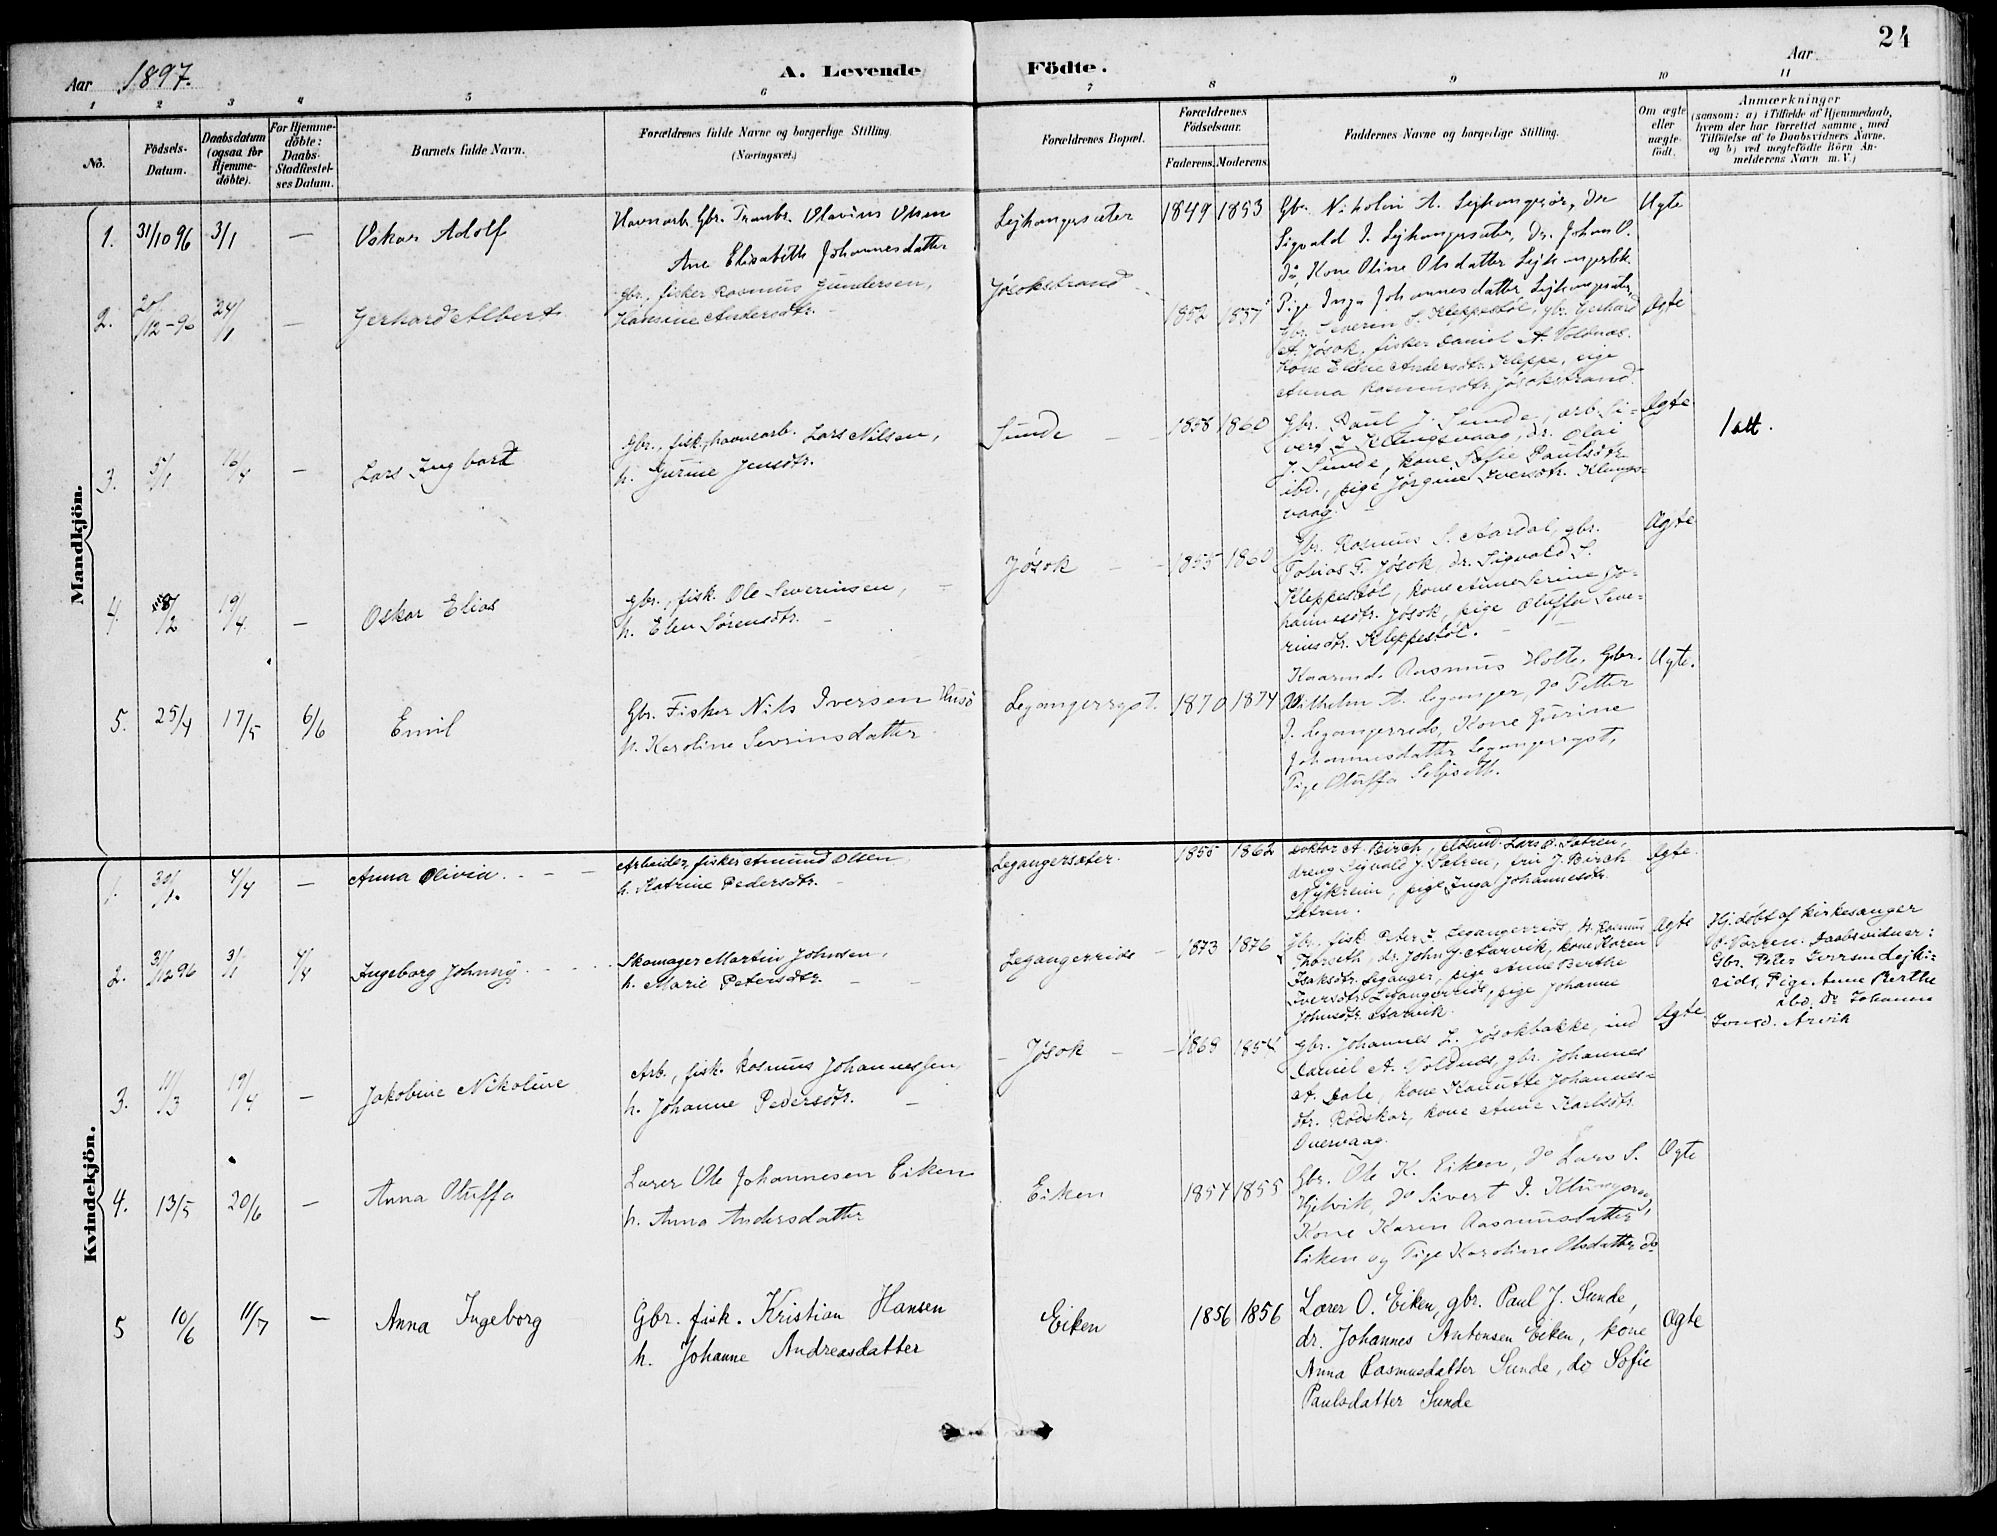 24
Aar 1897. A. Levende Födte. Aar
1 2 3 4 5 6 7 8 9 10 11
No.
Födsels-Datum.
Daabsdatum (ogsaa for Hjemme-döbte).
For Hjemme-döbte: Daabs-Stadfæstel-ses Datum.
Barnets fulde Navn.
Forældrenes fulde Navne og borgerlige Stilling. (Næringsvei.)
Forældrenes Bopæl.
Forældrenes Födselsaar. Faderens. Moderens.
Faddernes Navne og borgerlige Stilling.
Om ægte eller uægte födt.
Anmærkninger
(saasom: a) i Tilfælde af Hjemmedaab, hvem der har forrettet samme, med Tilföielse af to Daabsvidners Navne. og b) ved uægtefödte Börn An-melderens Navn m. V.)
Mandkjön.
1. 31/10 96 3/1 — Oskar Adolf
Havnarb. Gbr. Olavius Olsen
Ane Elisabeth Johannesdatter
Lejkangersæter 1849 1853
Gbr. Nikolai A. Lejkanger, Dr
Sigvald J. Lejkangersæter, Dr. Johan O.
Do, Kone Oline Olsdatter
Pige Inga Johannesdatter Lejkangersæter
Ægte
2. 20/12-96 24/1 — Gerhard Albert
Gbr., fisker Rasmus Gundersen,
Hansine Andersdtr.
Jösokstrand 1852 1857
Gbr. Severin S. Kleppestöl, gbr. Gerhard
A. Jösok, fisker Daniel A. Voldnæs.
Kone Eline Andersdtr. Kleppe, pige
Anna Rasmusdtr. Jösokstrand.
Ægte
3. 5/1 16/4 — Lars Ingbart
Gbr., fisk., havnearb. Lars Nilsen,
h. Gurine Jensdtr.
Sunde 1858 1860
Gbr. Paul J. Sunde, arb. Si-
vert I. Klungsvaag, dr. Olai
J. Sunde, kone Sofie Paulsdtr.
ibd., pige Jörgine Iversdtr. Klungs-
vaag.
Ægte
1 att.
4. 8/2 19/4 — Oskar Elias
Gbr., fisk. Ole Severinsen,
h. Elen Sörensdtr.
Jösok 1855 1860
Gbr. Rasmus S. Aardal, gbr.
Tobias T. Jösok, dr. Sigvald S.
Kleppestöl, kone Anne Serine Jo-
hannesdtr. Jösok, pige Oluffa Seve-
rinsdtr. Kleppestöl.
Ægte
5. 25/4 17/5 6/6 Emil
Gbr. Fisker Nils Iversen Husö
h. Karoline Sevrinsdatter
Legangerrgst. 1870 1874
Rasmus Holte, Gbr.
Wilhelm A. Leganger, Do Petter
J. Legangerreids, Kone Gurine
Johannesdatter Legangerrgst,
Pige Oluffa
Ægte.
Kvindekjön.
1. 4/4 — Anna Olivia
Arbeider, fisker Amund Olsen
h. Katrine Pedersdtr.
Legangersæter. 1855 1862
Doktor A. Birch, Lars O. Sætren,
dreng Sigvald J. Sætren, fru J. Birch
Nykreim, pige Inga Johannesdtr.
Sætren.
Ægte
2. 31/12 96 3/1 4/4 Ingeborg Johnny
Skomager Martin Johnsen,
h. Marie Petersdtr.
Legangerreids 1873 1876
Gbr., fisk. Peter I. Legangerreids, Rasmus
Thorseth, dr. John J. Aarvik, kone Karen
Isaksdtr. Leganger, pige Anne Berthe
Iversdtr. Legangerreids, pige Johanne
Johnsdtr. Aarvik.
Ægte
Hj. döbt af kirkesanger
O. Varren. Daabsvidner:
Gbr. Peter
rids, Pige Anne Berthe
ibd. Do Johanne
Jonsd. Arvik
3. 11/3 19/4 — Jakobine Nikoline
Arb., fisk. Rasmus Johannessen
h. Johanne Pedersdtr.
Jösok 1868 1854
Gbr. Johannes L. Jösokbakke, ind
Daniel A. Voldnæs, gbr. Johannes
A. Dale, kone Kanutte Johannes-
dtr. Rödskar, kone Anne Karlsdtr.
Qvervaag.
Ægte
4. 13/5 20/6 — Anna Oluffa
Lærer Ole Johannesen Eiken
h. Anna Andersdatter
Eiken 1854 1855
Gbr. Ole K. Eiken, Do Lars S.
Hjelvik, Do Sivert I. Klungsvaag,
Kone Karen Rasmusdatter
Eiken og Pige Karoline Olsdatter do
Ægte
5 10/6 11/7 — Anna Ingeborg
Gbr. fisk. Kristian Hansen
h. Johanne Andreasdatter
Eiken 1856 1856
Lærer O. Eiken, gbr. Paul J. Sunde,
dr. Johannes Antonsen Eiken, kone
Anna Rasmusdatter Sunde, do Sofie
Paulsdatter Sunde
Ægte